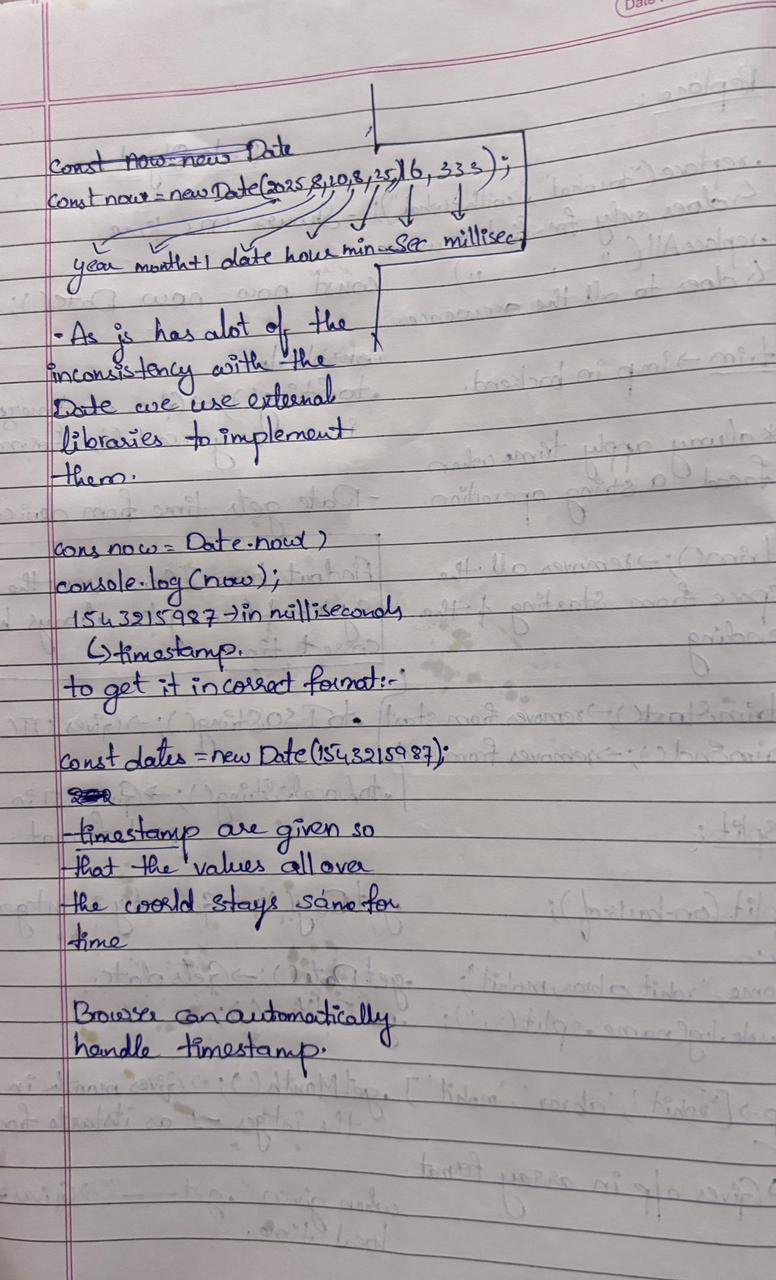 Date
const now = new Date
const now = new Date(2025,8,20,8,25,16,333);
year month+1 date hour min sec millisec
- As js has alot of the
inconsistency with the
Date we use external
libraries to implement
them.
cons now = Date.now()
console.log(now);
1543215987 → in milliseconds
↳ timestamp.
to get it in correct format:-
const dates = new Date(1543215987);
- timestamp are given so
that the values all over
the world stays same for
time
Browser can automatically
handle timestamp.